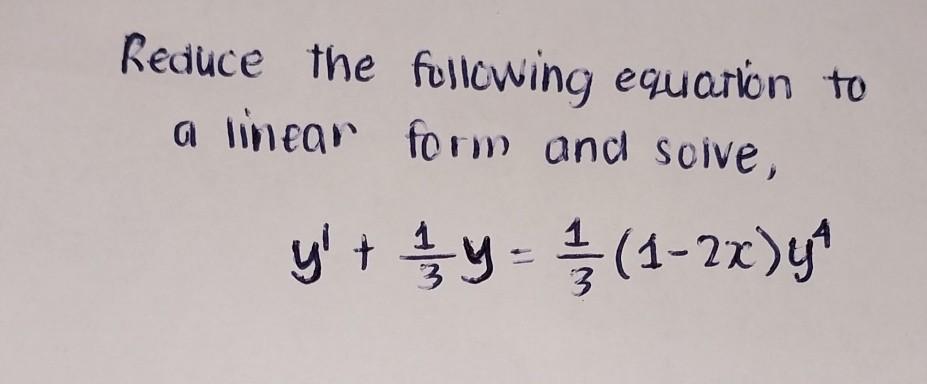 Reduce the following equation to
a linear form and solve,
y' + 1/3 y = 1/3 (1-2x)y⁴